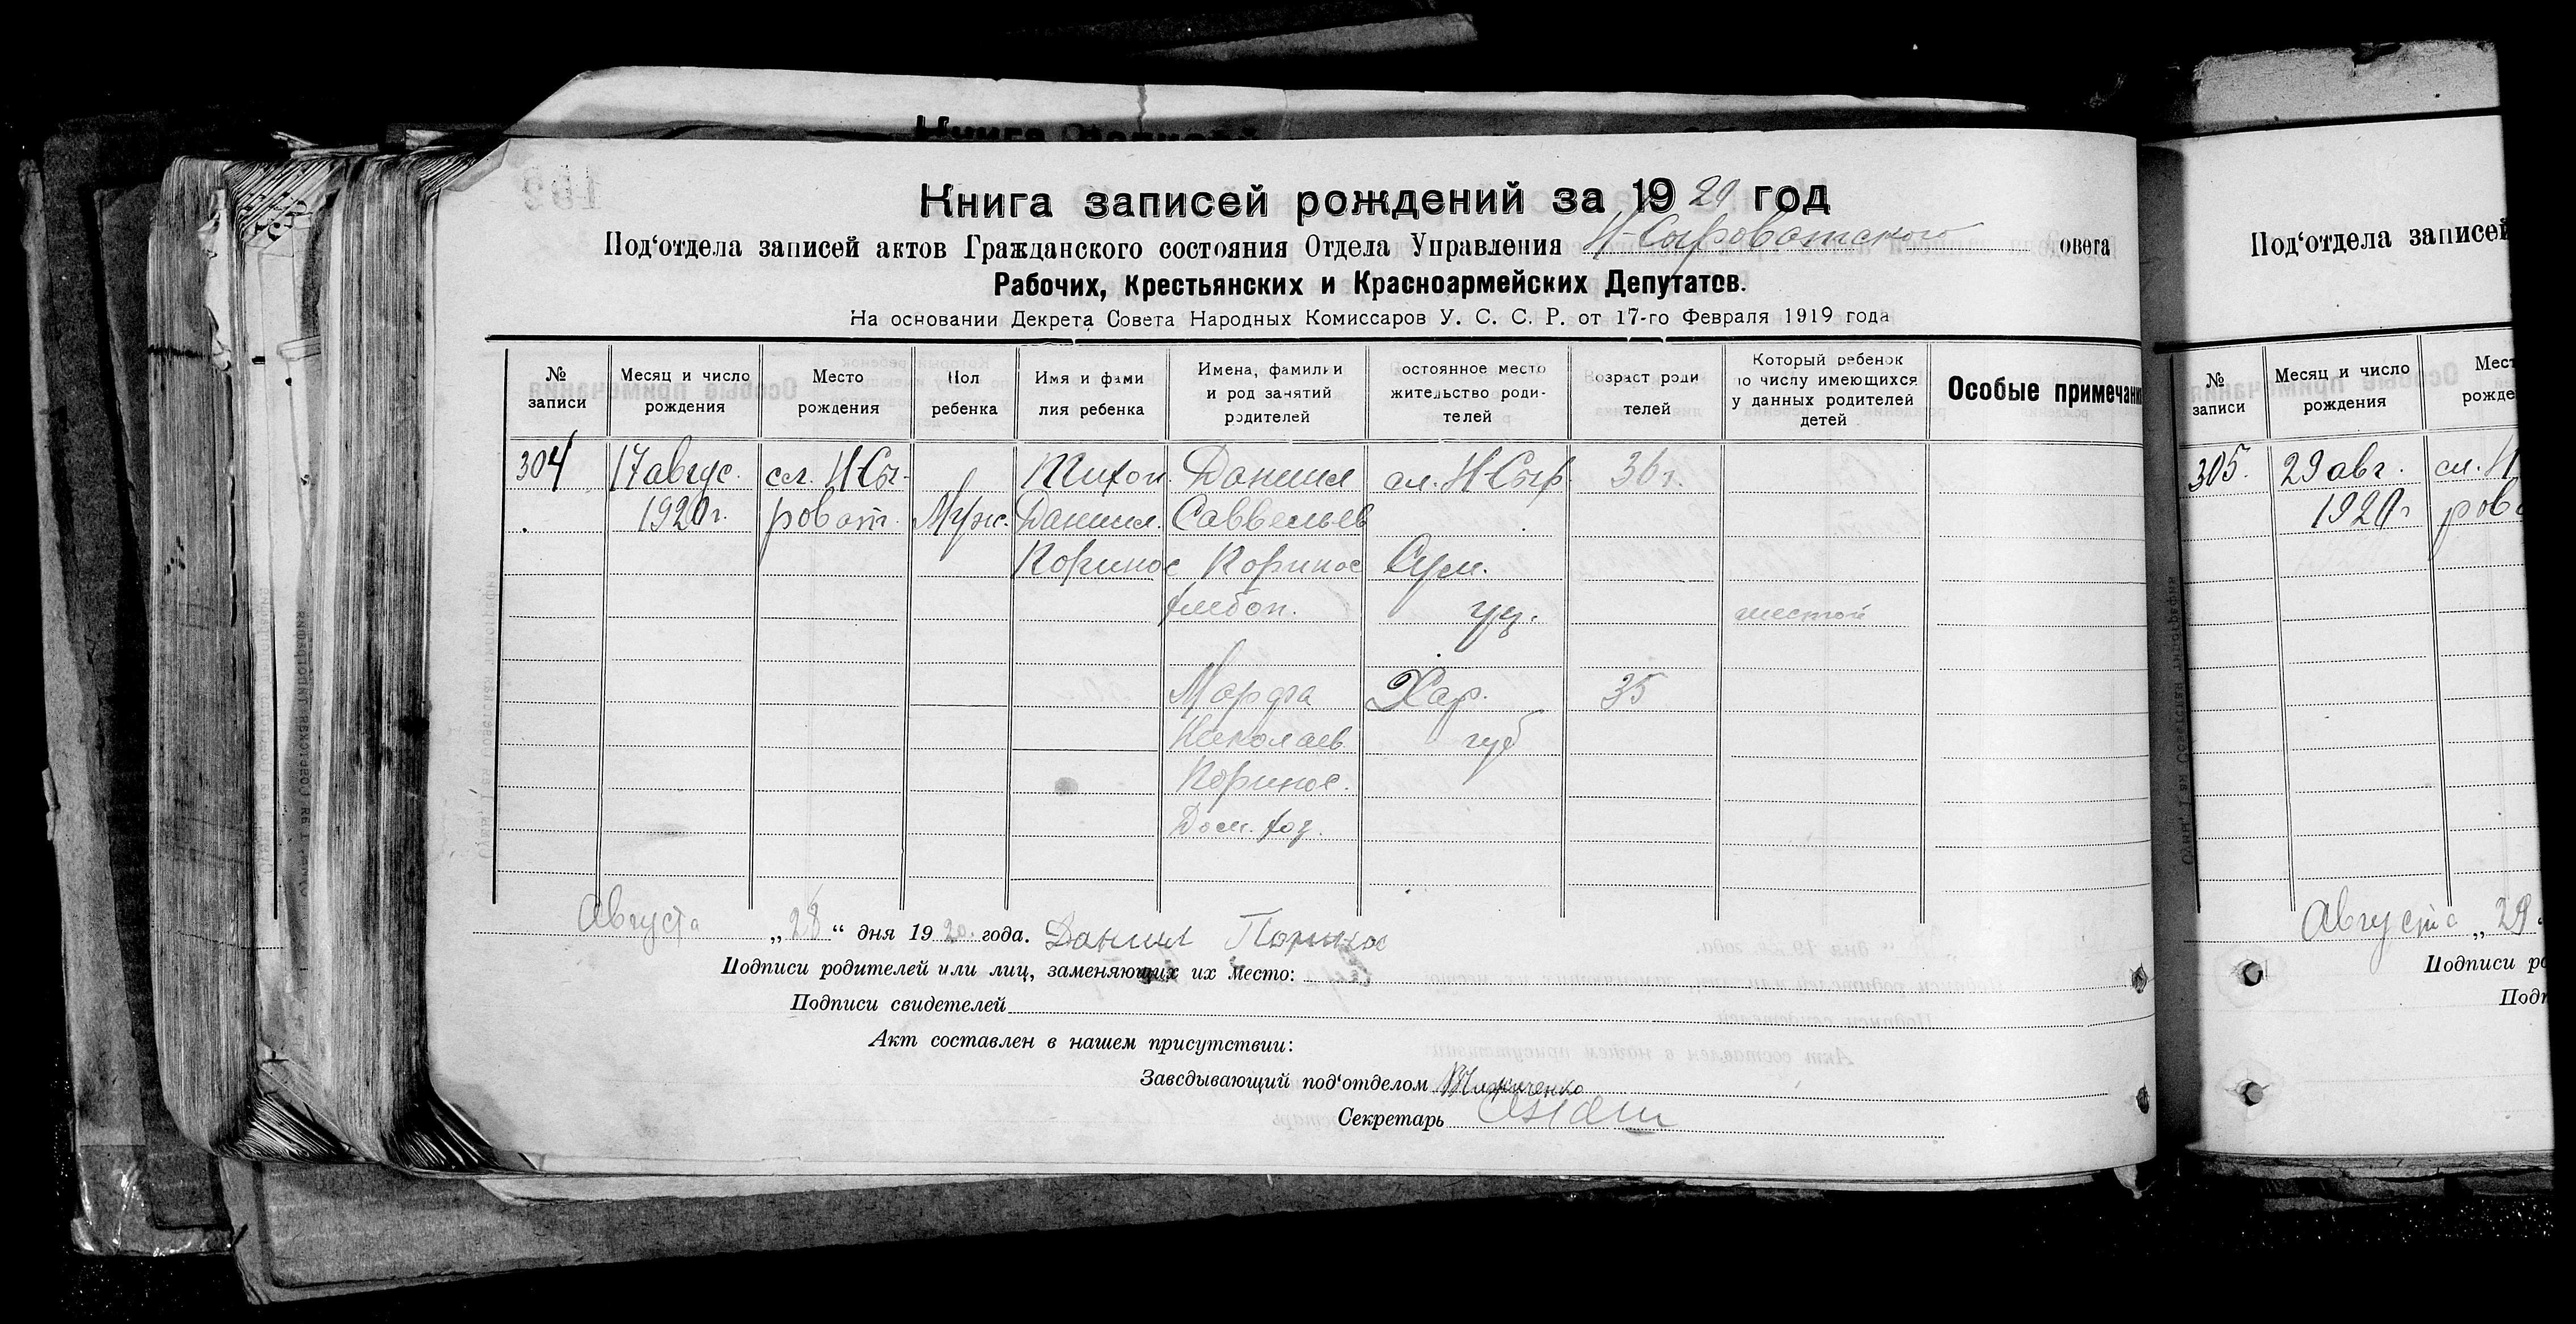 Книга записей рождений за 1920 год
Под‘отдела записей актов Гражданского состояния Отдела Управления Н-Сыроватского овета
Рабочих, Крестьянских и Красноармейских Депутатов.
На основании Декрета Совета Народных Комиссаров У. С. С. Р. от 17-го Февраля 1919 года
№ записи
Месяц и число рождения
Место рождения
Пол ребенка
Имя и фами лия ребенка
Имена, фамилии и род занятий родителей
остоянное место жительство роди- телей
озраст роди телей
Который ребенок по числу имеющихся у данных родителей детей
Особые примечани
304 17 авгус. сл. Н-Сы- Тихон. Даниил сл. Н-Сыр. 36 г.
1920 г. роват. Муж. Данил. Савельев
Коринос Коринос Сум.
хлебоп. уу. шестой
Марфа Хар. 35
Николаев губ
Коринос.
Дом. хоз.
Августа „28“ дня 1920. года. Данил
Подписи родителей или лиц, заменяющих их место:
Подписи свидетелей
Акт составлен в нашем присутствии:
Заведывающий под‘отделом
Секретарь
Под‘отдела записей
№ записи
Месяц и число рождения
Мест рожде
305. 29 авг. сл. Н
1920 г рова
Августа „29
Подписи ро
Подп